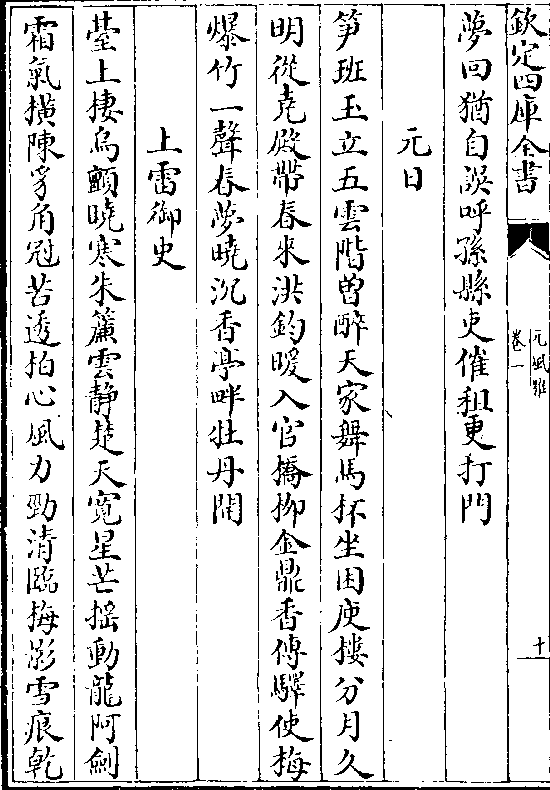 欽定四庫全書
元風雅
卷一
十
夢回猶自誤呼孫縣吏催租更打門
元日
笋班玉立五雲階曽醉天家舞馬杯坐困庾摟分月久
明從堯殿帶春來洪鈞暖入官橋栁金鼎香傳驛使梅
爆竹一聲春夢曉沉香亭畔牡丹開
上雷御史
䑓上棲烏顫曉寒朱簾雲静楚天寛星芒揺動龍阿劍
霜氣横陳豸角冠苦透拍心風力勁清臨梅影雪痕乾